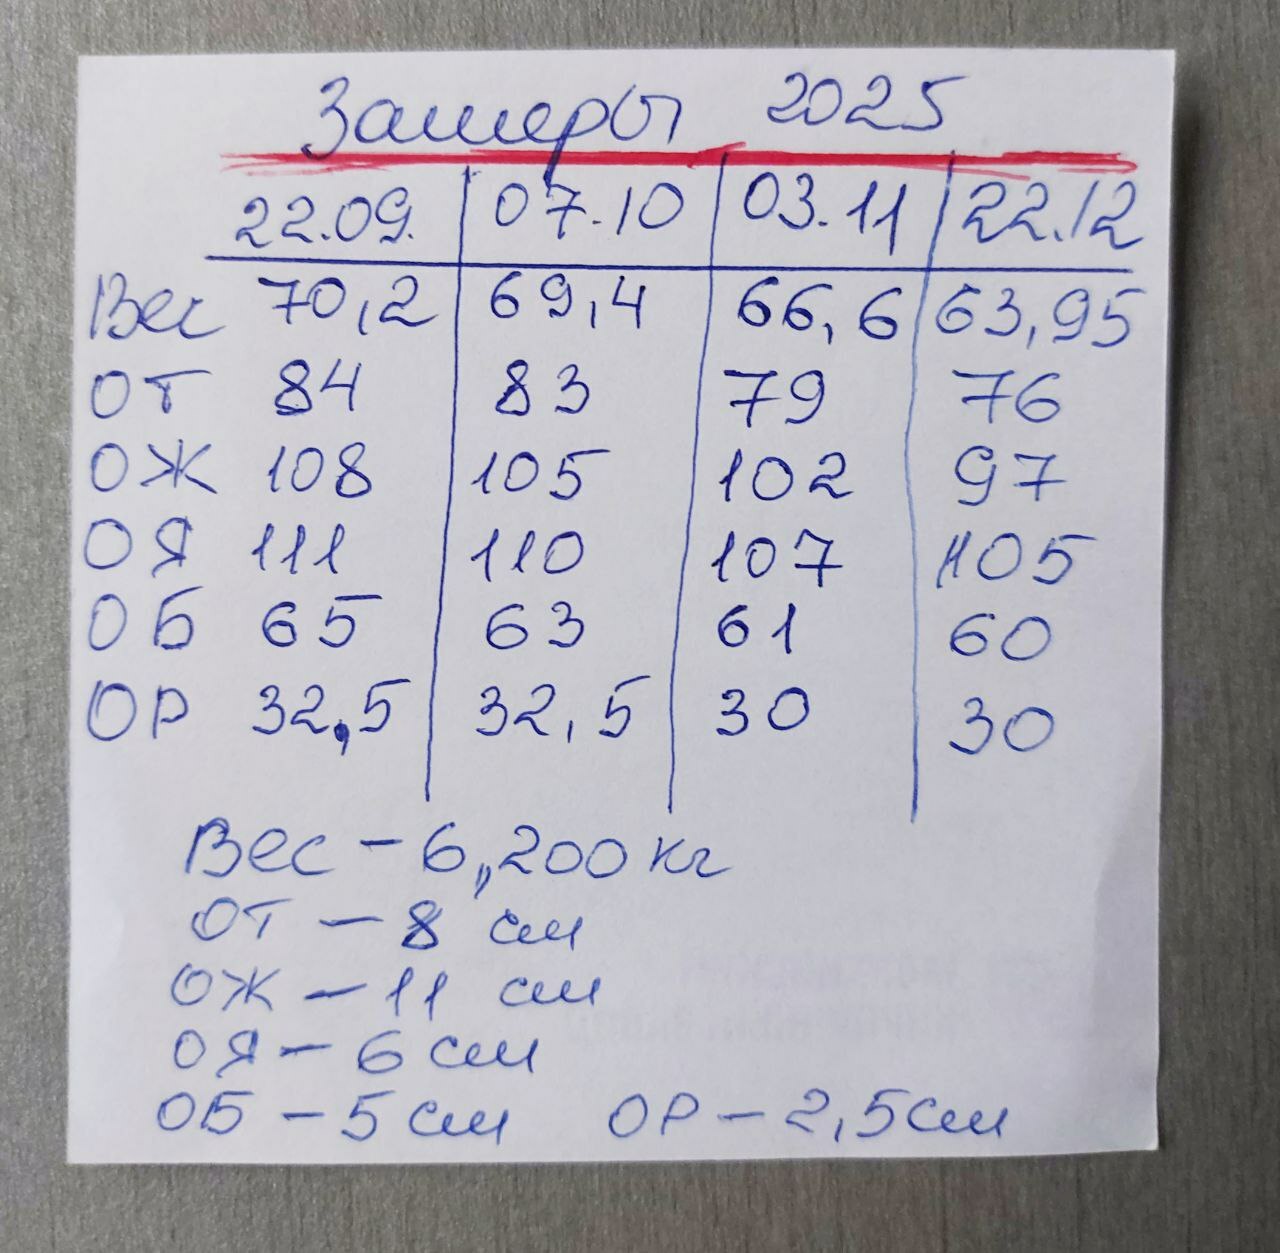 Замеры 2025
22.09. 07.10 03.11 22.12
Вес 70,2 69,4 66,6 63,95
ОТ 84 83 79 76
ОЖ 108 105 102 97
ОЯ 111 110 107 105
ОБ 65 63 61 60
ОР 32,5 32,5 30 30
Вес - 6,200 кг
ОТ - 8 см
ОЖ - 11 см
ОЯ - 6 см
ОБ - 5 см ОР - 2,5 см